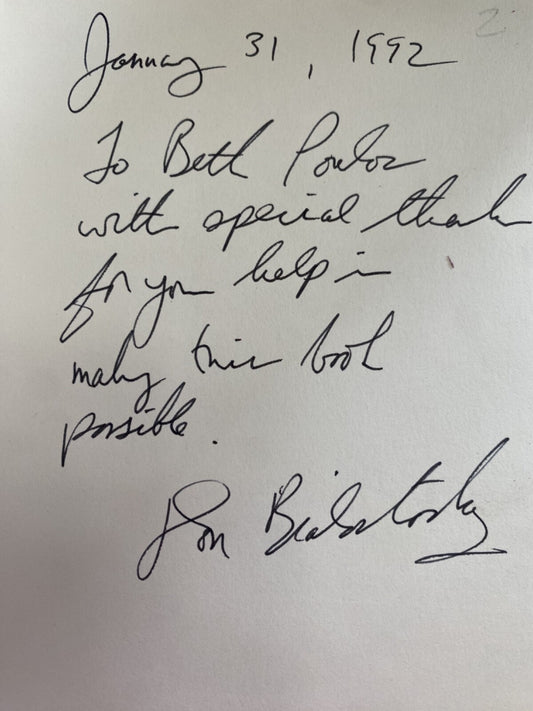 January 31, 1992
To Beth Poulos
with special thanks
for your help in
making this book
possible.
Don Bialostosky
2